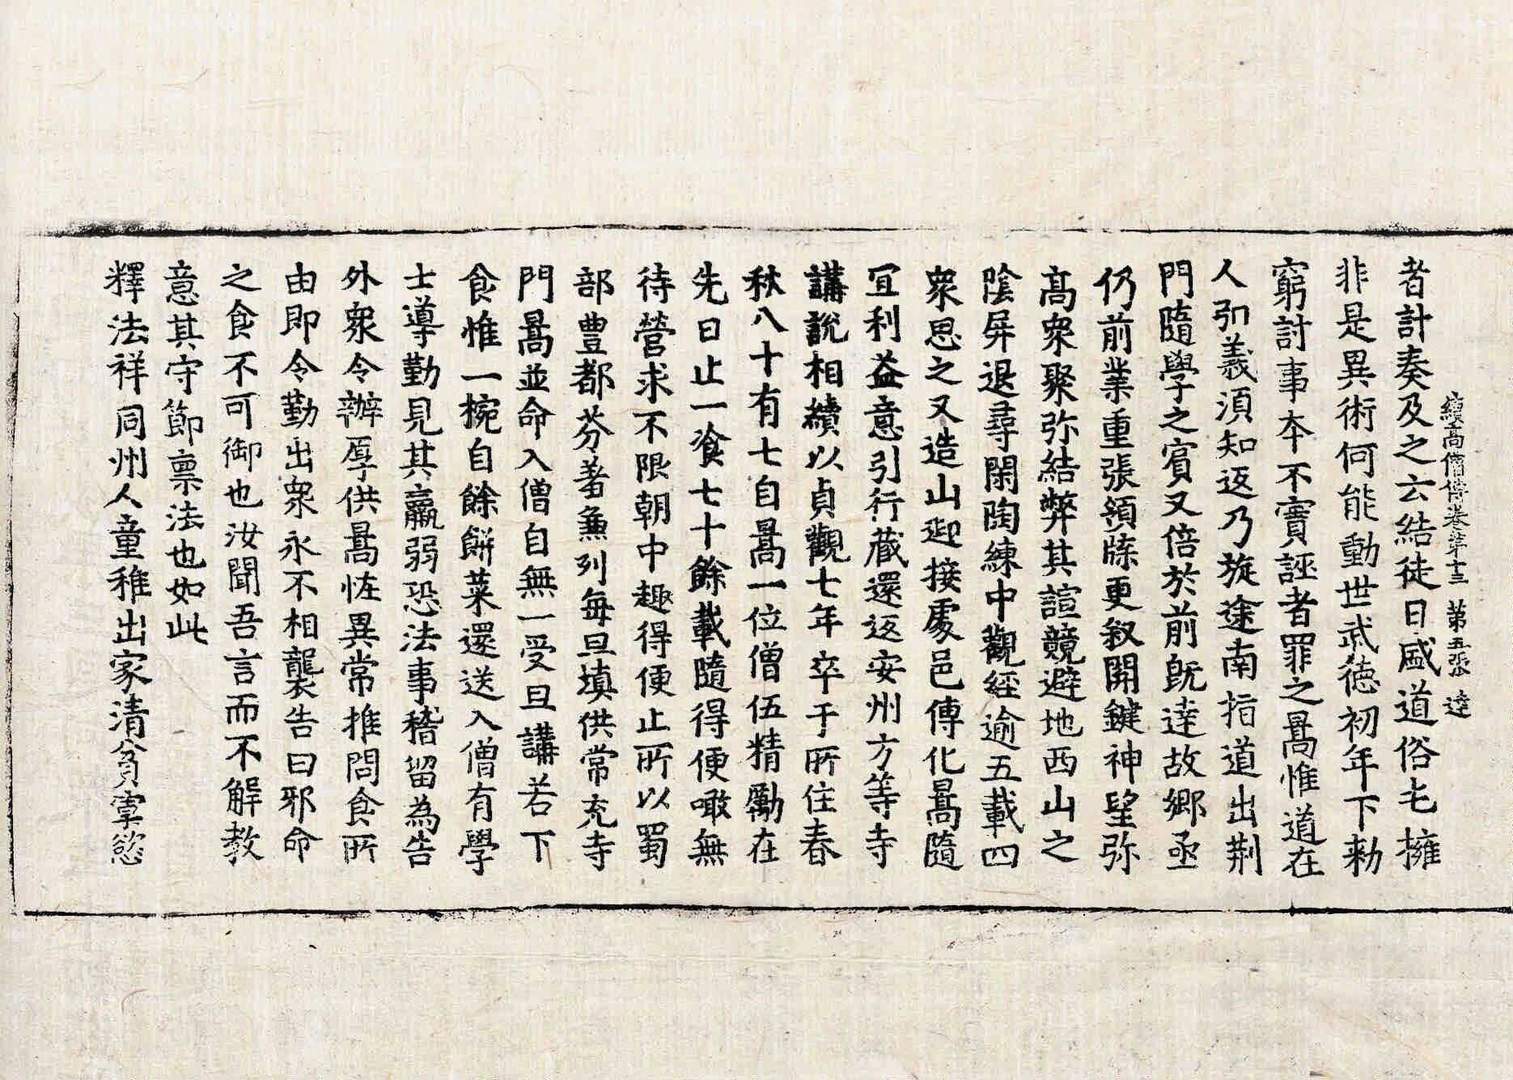 續高僧傳卷第十三 第五張 達
者計奏及之云結徒日盛道俗屯擁
非是異術何能動世武德初年下勑
窮討事本不實誣者罪之暠惟道在
人弘義須知返乃旋途南指道出荆
門隨學之賓又倍於前旣達故鄉亟
仍前業重張領牒更叙開鍵神望弥
高衆聚弥結弊其諠競避地西山之
陰屏退尋閑陶練中觀經逾五載四
衆思之又造山迎接處邑傳化暠隨
冝利益意引行藏還返安州方等寺
講說相續以貞觀七年卒于所住春
秋八十有七自暠一位僧伍精勵在
先日止一飡七十餘載隨得便噉無
待營求不限朝中趣得便止所以蜀
部豊都芬羞兼列每旦填供常充寺
門暠並命入僧自無一受旦講若下
食惟一椀自餘餅菜還送入僧有學
士導勤見其羸弱恐法事稽留為告
外衆令辦厚供暠恠異常推問食所
由即令勤出衆永不相襲告曰邪命
之食不可御也汝聞吾言而不解教
意其守節禀法也如此
釋法祥同州人童稚出家清貧寡慾